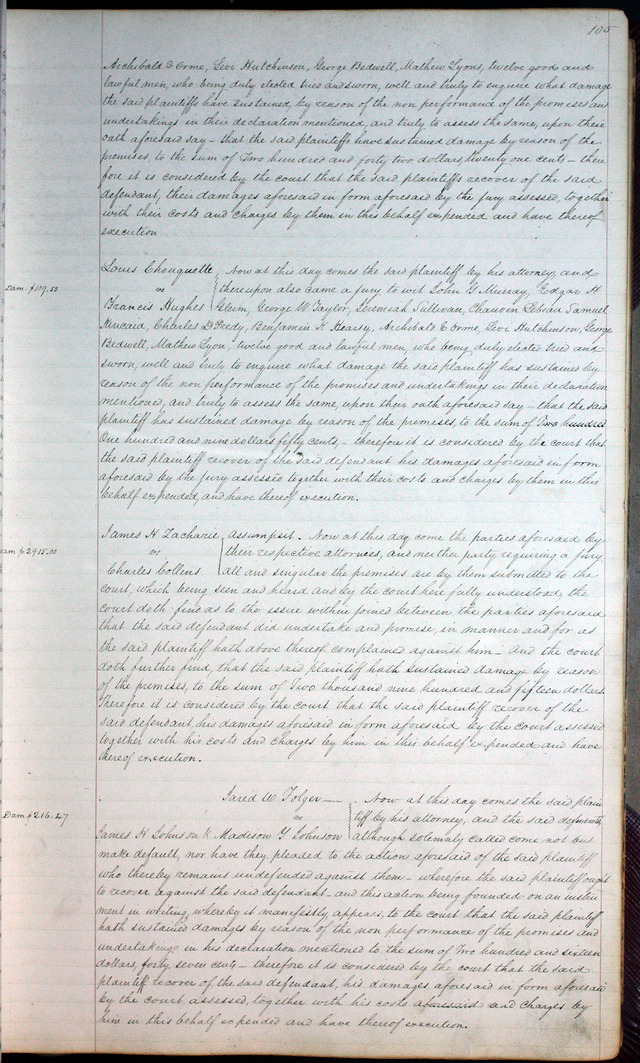 105
Archibald E Orme, Levi Hutchinson, George Bedwell, Mathew Lyons, twelve good and
lawful men, who being duly elected tried and sworn, well and truly to enquire what damage
the said plaintiffs have sustained, by reason of the non performance of the promises and
undertakings in their declaration mentioned, and truly to assess the same, upon their
oath aforesaid say – that the said plaintiffs have sustained damage by reason of the
premises, to the sum of Two hundred and forty two dollars, twenty one cents – there
fore it is considered by the court that the said plaintiffs recover of the said
defendant, their damages aforesaid in form aforesaid by the jury assessed, together
with their costs and charges by them in this behalf expended and have thereof
execution
Louis Chouquette Now at this day comes the said plaintiff by his attorney, and
Dam. $109.50 vs thereupon also came a jury to wit John G Murray, Edgar H
Francis Hughes Gleim, George W Taylor, Jeremiah Sullivan, Chauvin Lebeau Samuel
Kincaid, Charles D Peedy, Benjamin K Hearsy, Archibald E Orme, Levi Hutchinson, George
Bedwell, Mathew Lyon, twelve good and lawful men, who being duly elected tried and
sworn, well and truly to enquire what damage the said plaintiff has sustained by
reason of the non performance of the promises and undertakings in their declaration
mentioned, and truly to assess the same, upon their oath aforesaid say – that the said
plaintiff has sustained damage by reason of the premises, to the sum of Two hundred
One hundred and nine dollars fifty cents – therefore it is considered by the court that
the said plaintiff recover of the said defendant his damages aforesaid in form
aforesaid by the jury assessed together with their costs and charges by them in this
behalf expended, and have thereof execution.
James H Zacharie assumpsit. Now at this day come the parties aforesaid by
Dam $2915.00 vs their respective attornies, and neither party requiring a jury
Charles Collens all and singular the premises are by them submitted to the
court, which being seen and heard and by the court here fully understood, the
court doth find as to the issue within joined between the parties aforesaid
that the said defendant did undertake and promise, in manner and for as
the said plaintiff hath above thereof complained against him – And the court
doth further find, that the said plaintiff hath sustained damage by reason
of the premises, to the sum of Two thousand nine hundred and fifteen dollars
Therefore it is considered by the court that the said plaintiff recover of the
said defendant, his damages aforesaid in form aforesaid by the court assessed
together with his costs and charges by him in this behalf expended and have
thereof execution.
Jared W Folger Now at this day comes the said plain
Dam $216.47 vs tiff by his attorney, and the said defendants,
James H Johnson & Madison Y Johnson although solemnly called come not but
make default, nor have they pleaded to the actions aforesaid of the said plaintiff
who thereby remains undefended against them – wherefore the said plaintiff ought
to recover against the said defendant – and this action being founded on an instru
ment in writing, whereby it manifestly appears, to the court that the said plaintiff
hath sustained damages by reason of the non performance of the promises and
undertakings in his declaration mentioned to the sum of Two hundred and sixteen
dollars, forty seven cents – therefore it is considered by the court that the said
plaintiff recover of the said defendant, his damages aforesaid in form aforesaid
by the court assessed, together with his costs aforesaid and charges by
him in this behalf expended and have thereof execution.